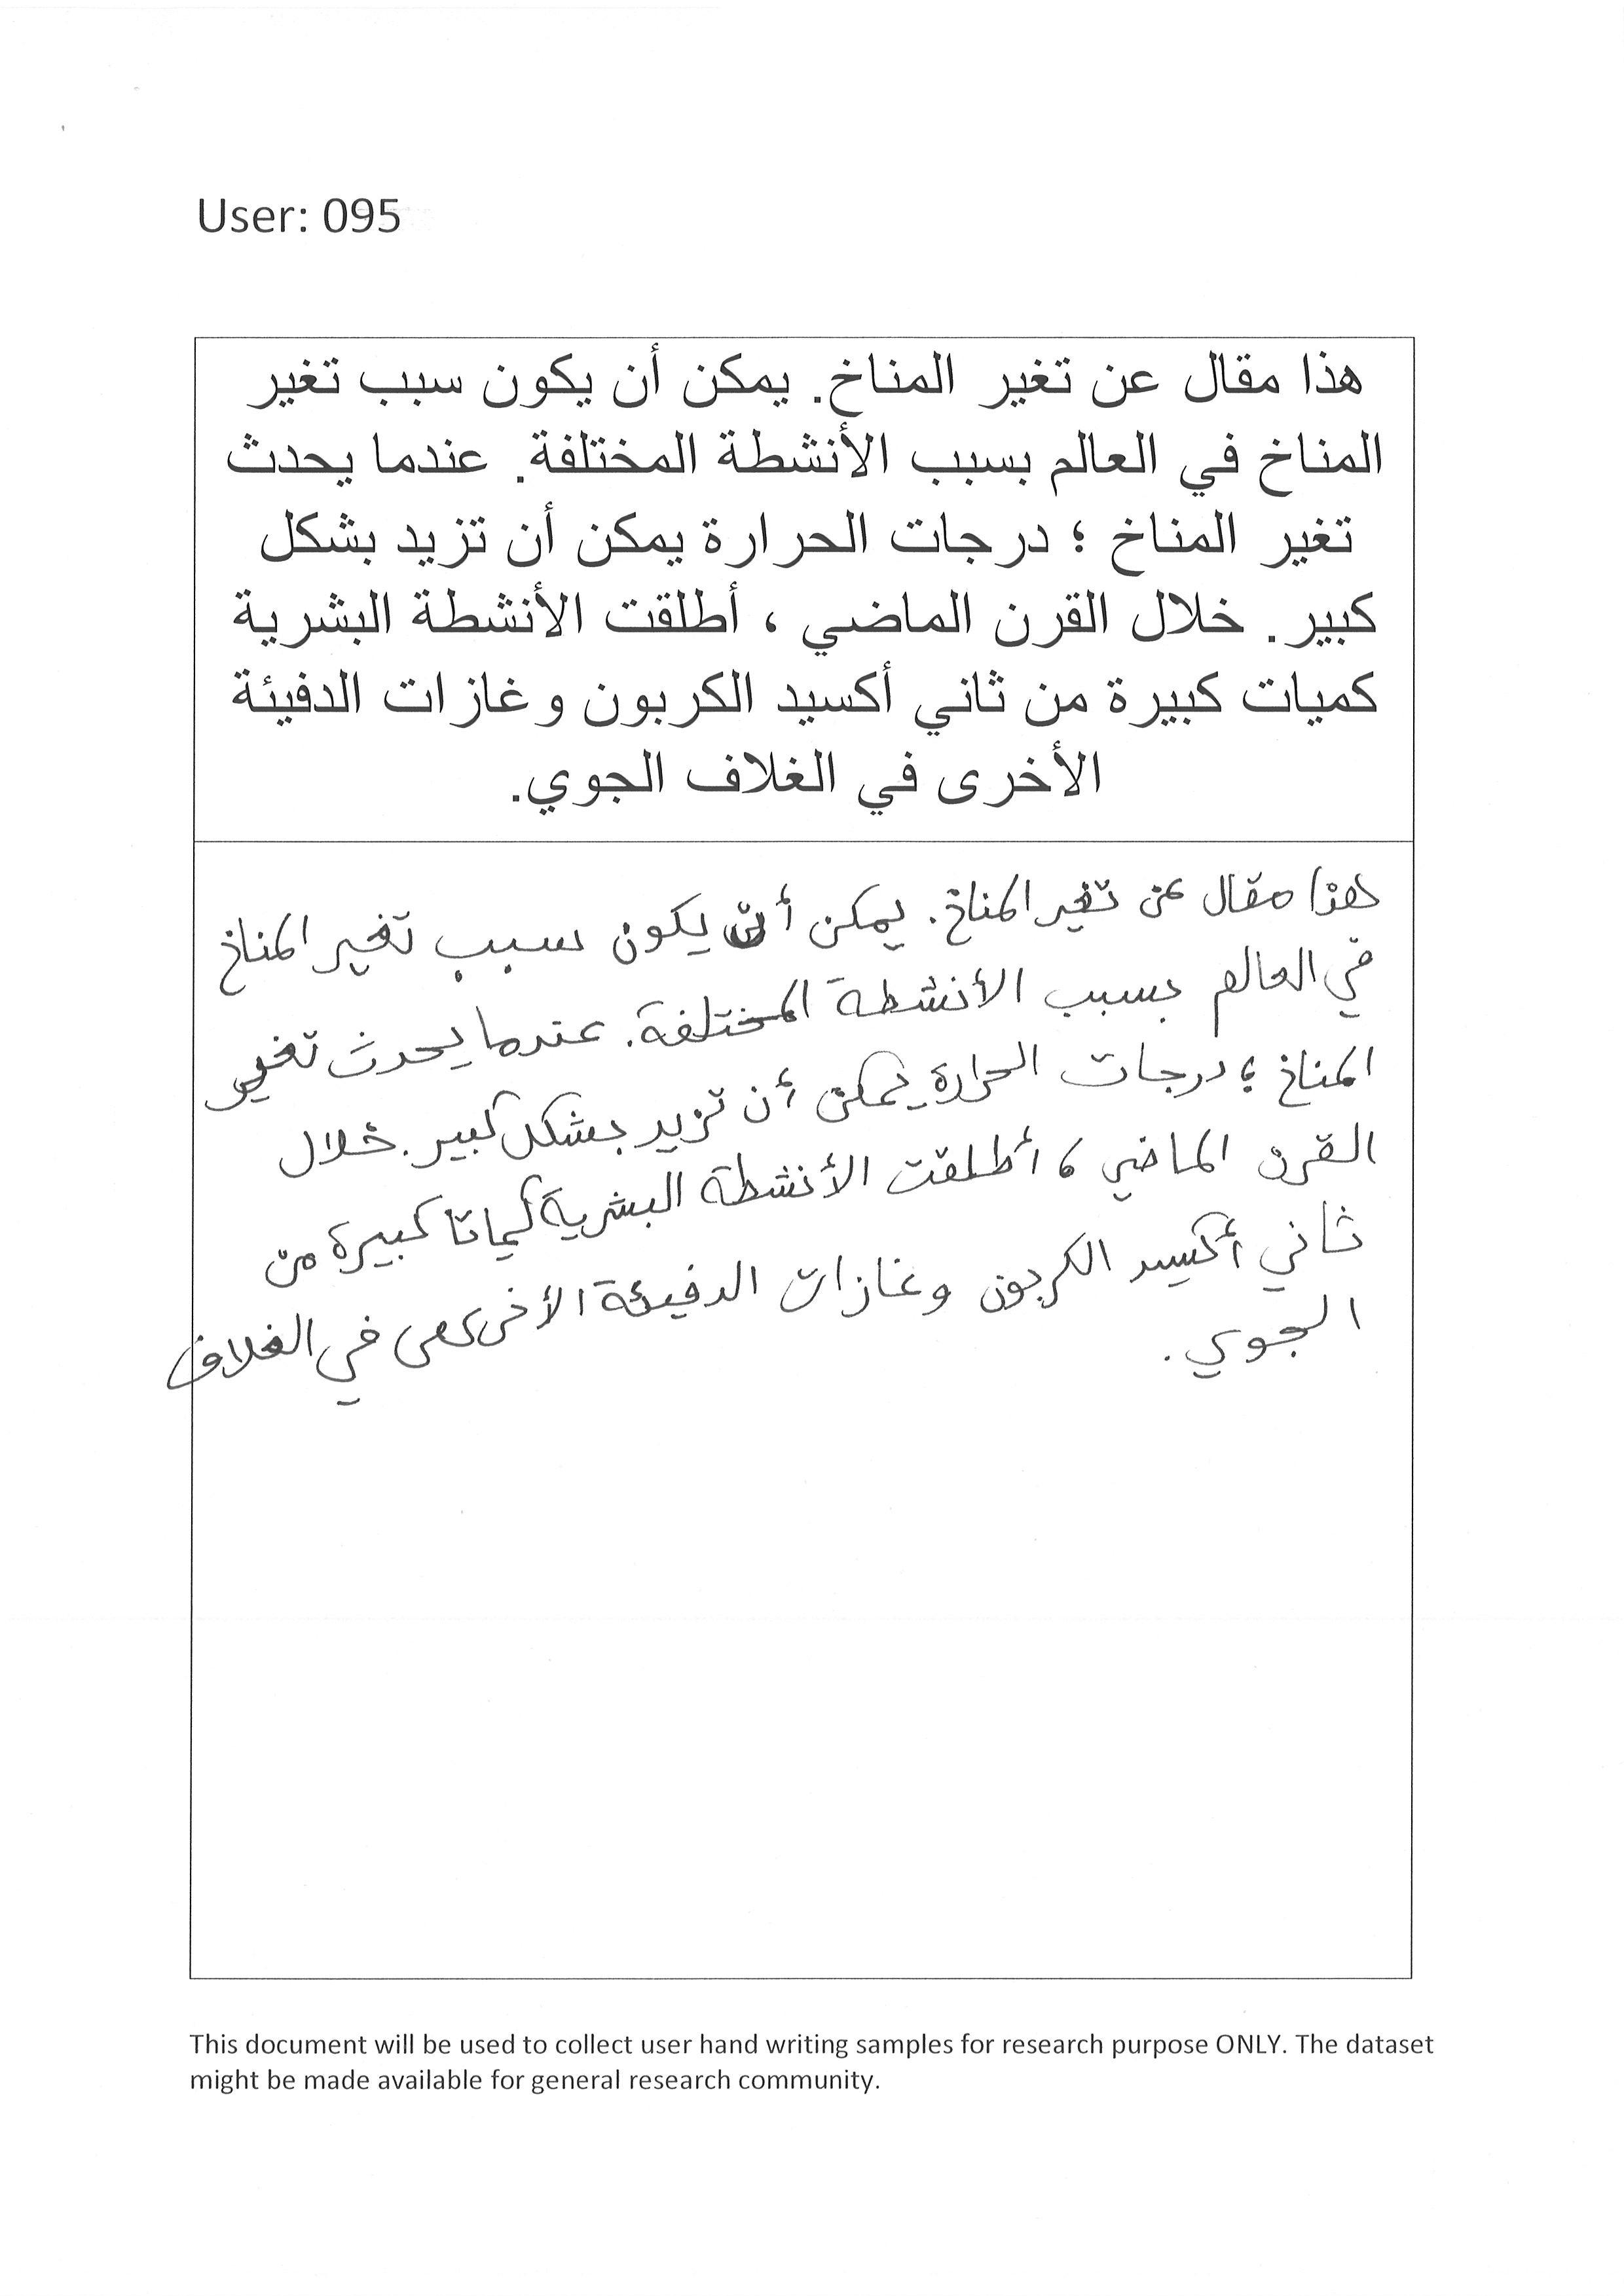 User: 095
هذا مقال عن تغير المناخ. يمكن أن يكون سبب تغير
المناخ في العالم بسبب الأنشطة المختلفة. عندما يحدث
تغير المناخ ؛ درجات الحرارة يمكن أن تزيد بشكل
كبير. خلال القرن الماضي ، أطلقت الأنشطة البشرية
كميات كبيرة من ثاني أكسيد الكربون وغازات الدفيئة
الأخرى في الغلاف الجوي.
هذا مقال عن تغير المناخ. يمكن أن يكون سبب تغير المناخ
في العالم بسبب الأنشطة المختلفة. عندما يحدث تغير
المناخ ؛ درجات الحرارة يمكن أن تزيد بشكل كبير. خلال
القرن الماضي ، أطلقت الأنشطة البشرية كمياتا كبيرة من
ثاني أكسيد الكربون وغازات الدفيئة الأخرى في الغلاف
الجوي.
This document will be used to collect user hand writing samples for research purpose ONLY. The dataset
might be made available for general research community.